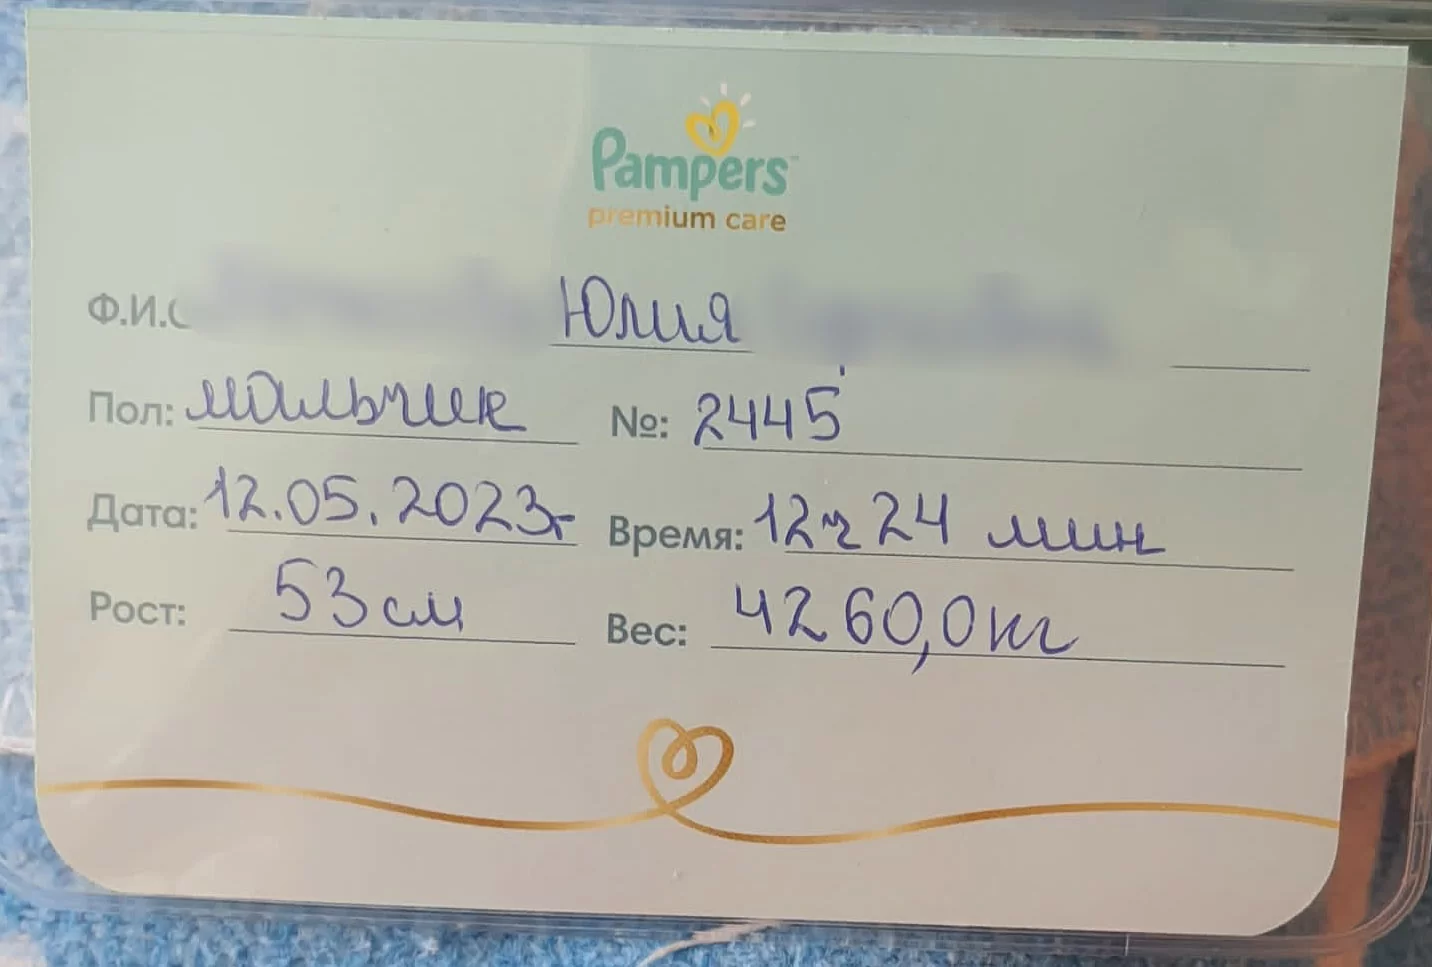 Pampers
premium care
Ф.И.О Юлия
Пол: мальчик №: 2445
Дата: 12.05.2023г Время: 12ч 24 мин
Рост: 53 см Вес: 4260,0 кг